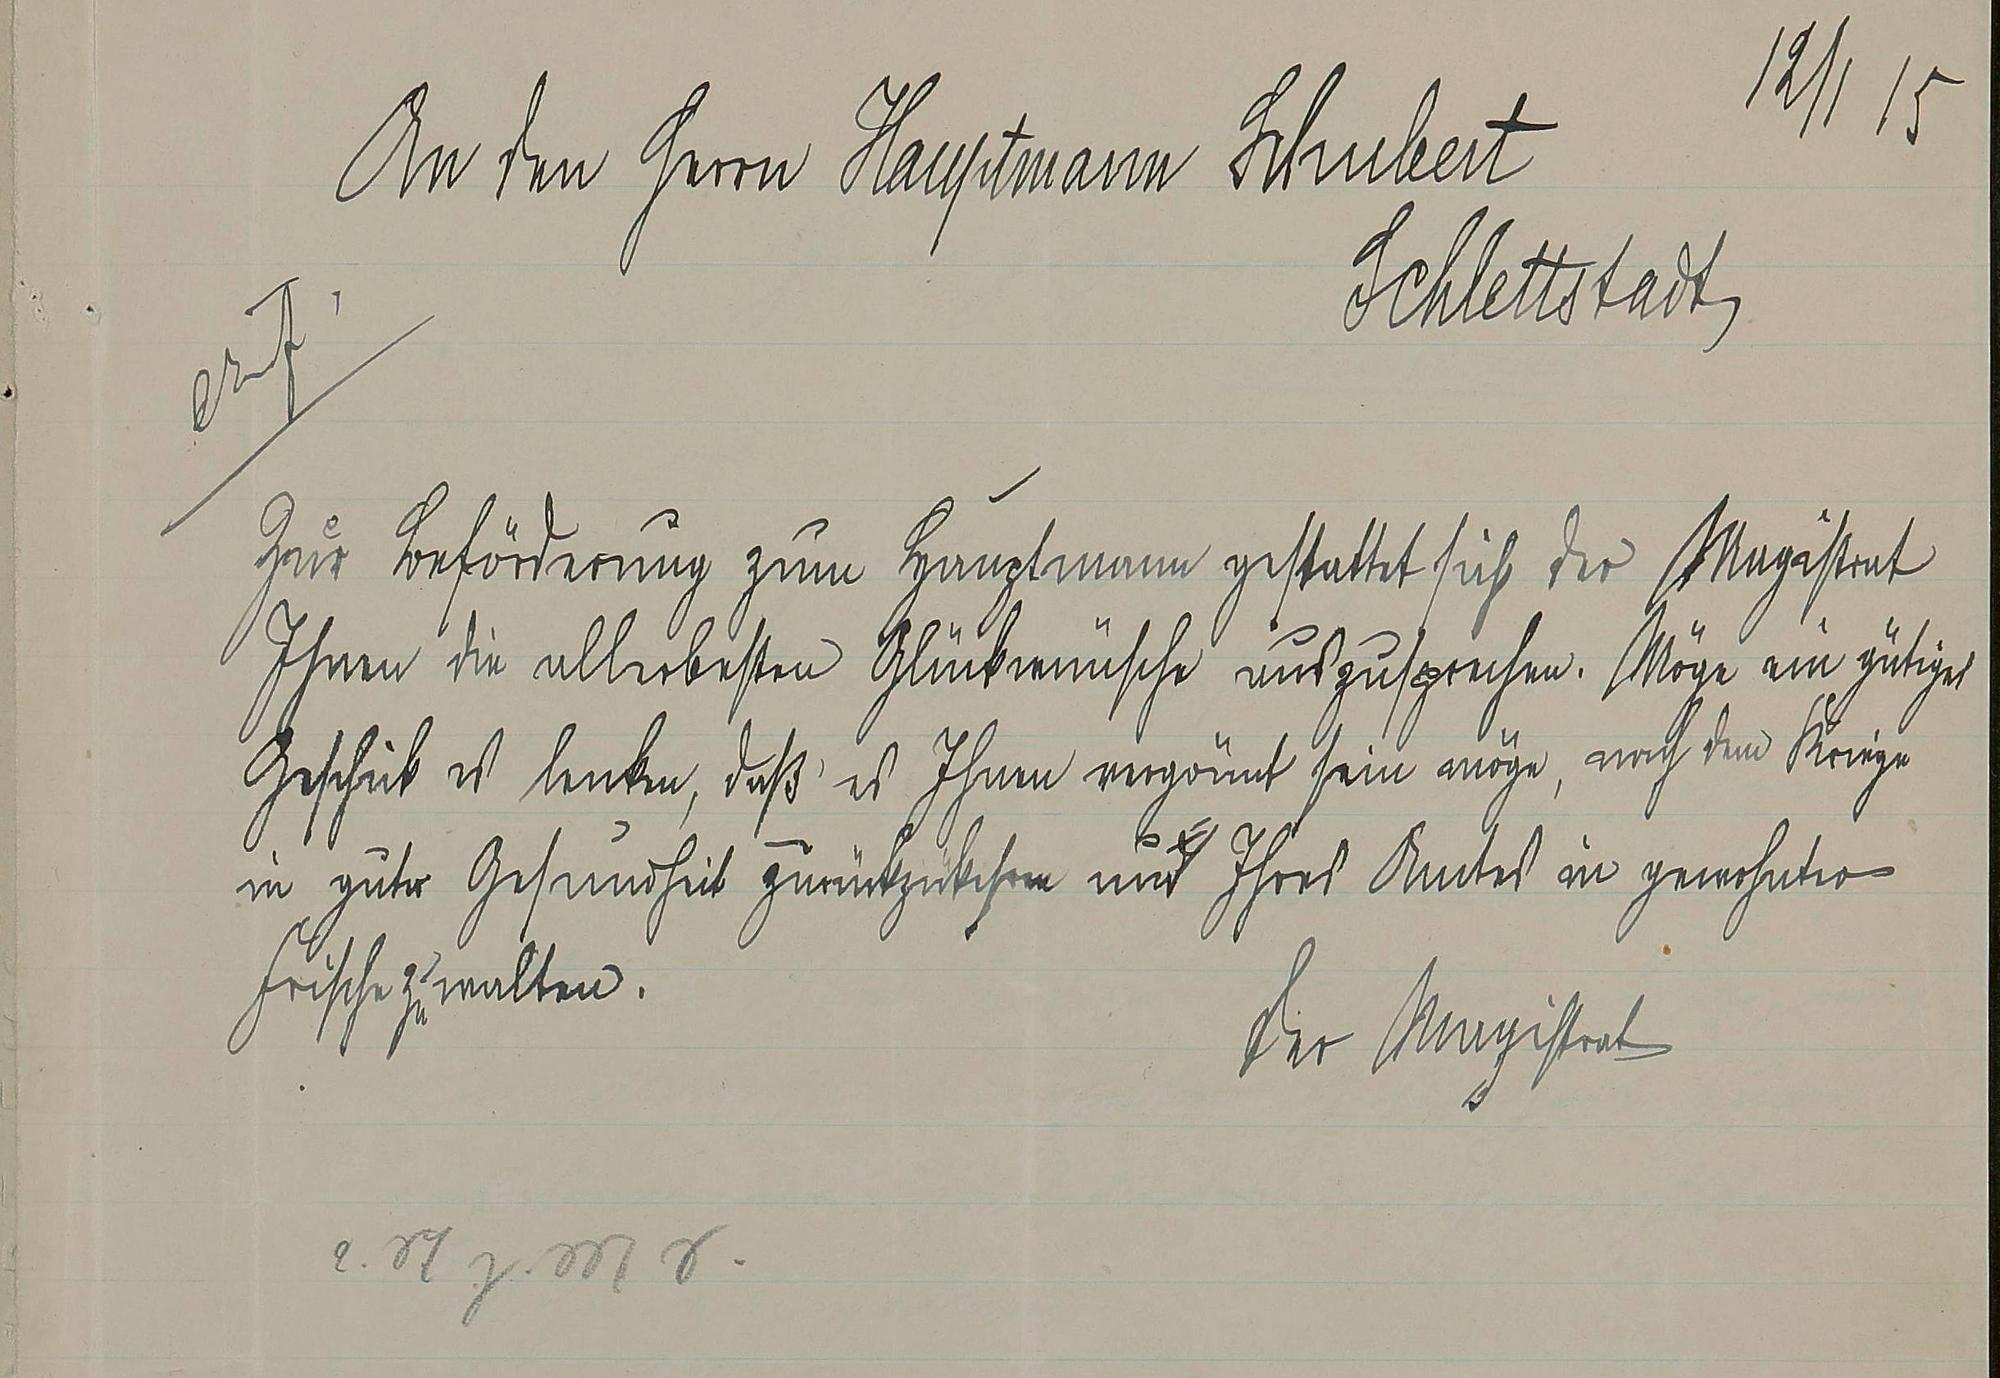 12/1 15
An den Herrn Hauptmann Schubert
Schlettstadt,
Zur Beförderung zum Hauptmann gestattet sich der Magistrat
Ihnen die allerbesten Glückwünsche auszusprechen. Möge ein gütiges
Geschick es lenken, daß es Ihnen vergönnt sein möge, nach dem Kriege
in guter Gesundheit zurückzukehren und Ihres Amtes in gewohnter
Frische zu walten.
Der Magistrat